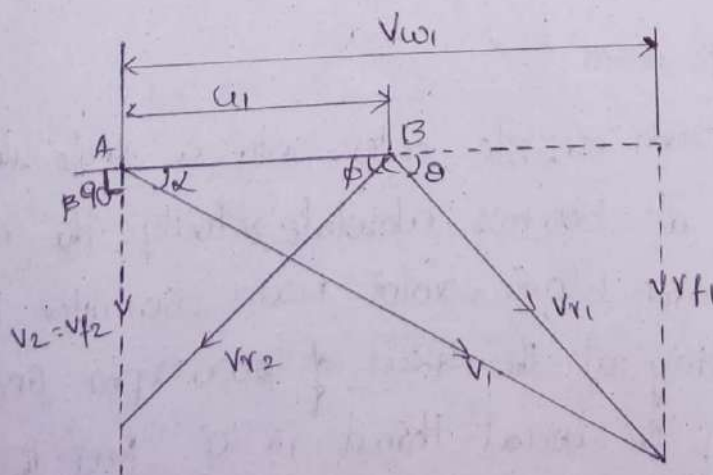 Vw1
u1
A B
β 90 α φ θ
V2 = Vf2 Vr2 V1 Vr1 Vf1